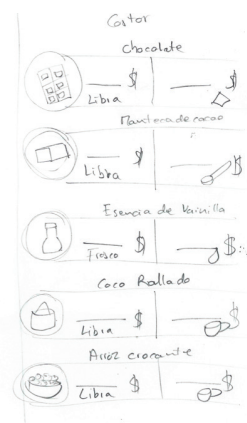 Costos
Chocolate
$ $
Libra
Manteca de cacao
$ $
Libra
Esencia de Vainilla
$ $
Frasco
Coco Rallado
$ $
Libra
Arroz crocante
$ $
Libra